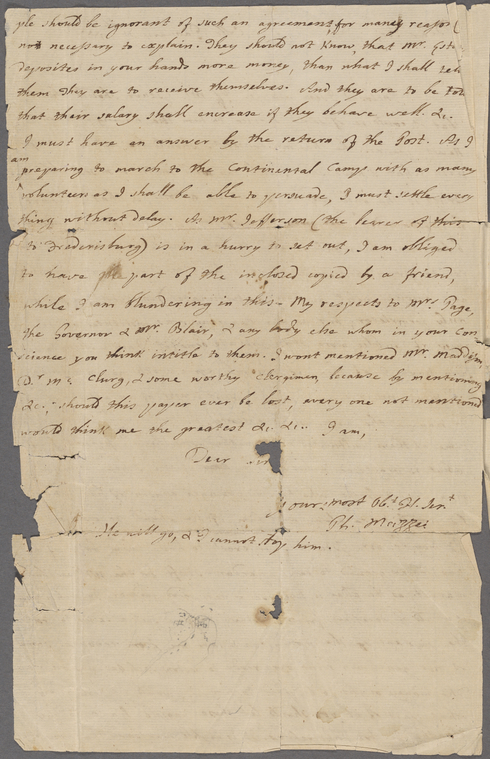 ple should be ignorant of such an agreement for maney reasons
not necessary to explain. They should not know, that Mr. Este
deposites in your hands more money, than what I shall tell
them They are to receive themselves. And they are to be told
that their salary shall encrease if they behave well. &c.
I must have an answer by the return of the Post. As I
am
preparing to march to the Continental Camp with as many
volunteers as I shall be able to persuade, I must settle every
thing without delay. As Mr. Jefferson (the bearer of this
to Fredericsburg) is in a hurry to set out, I am obliged
to have part of the inclosed copied by a friend,
while I am blundering in this. My respects to Mrs. Page,
the Governor & Mr. Blair, & any body else whom in your Con
science you think intitle to them. I wont mentioned Mr. Maddison,
Dr. Mc. Clurg, & some worthy Clergimen, because by mentioning
&c., should this paper ever be lost, every one not mentioned
would think me the greatest &c. &c. I am,
Dear Sir
Your most Obt. H. Sernt
Ph. Mazzei
He will go, & I cannot stay him.